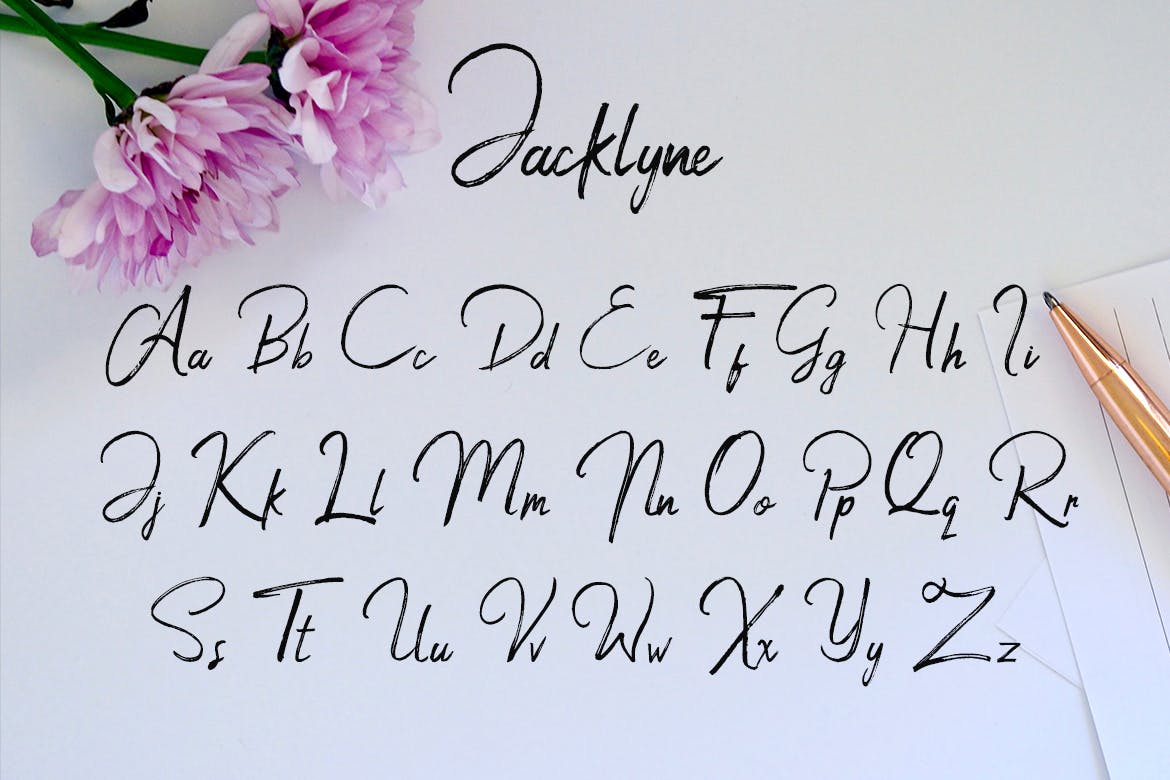 Jacklyne
Aa Bb Cc Dd Ee Ff Gg Hh Ii
Jj Kk Ll Mm Nn Oo Pp Qq Rr
Ss Tt Uu Vv Ww Xx Yy Zz